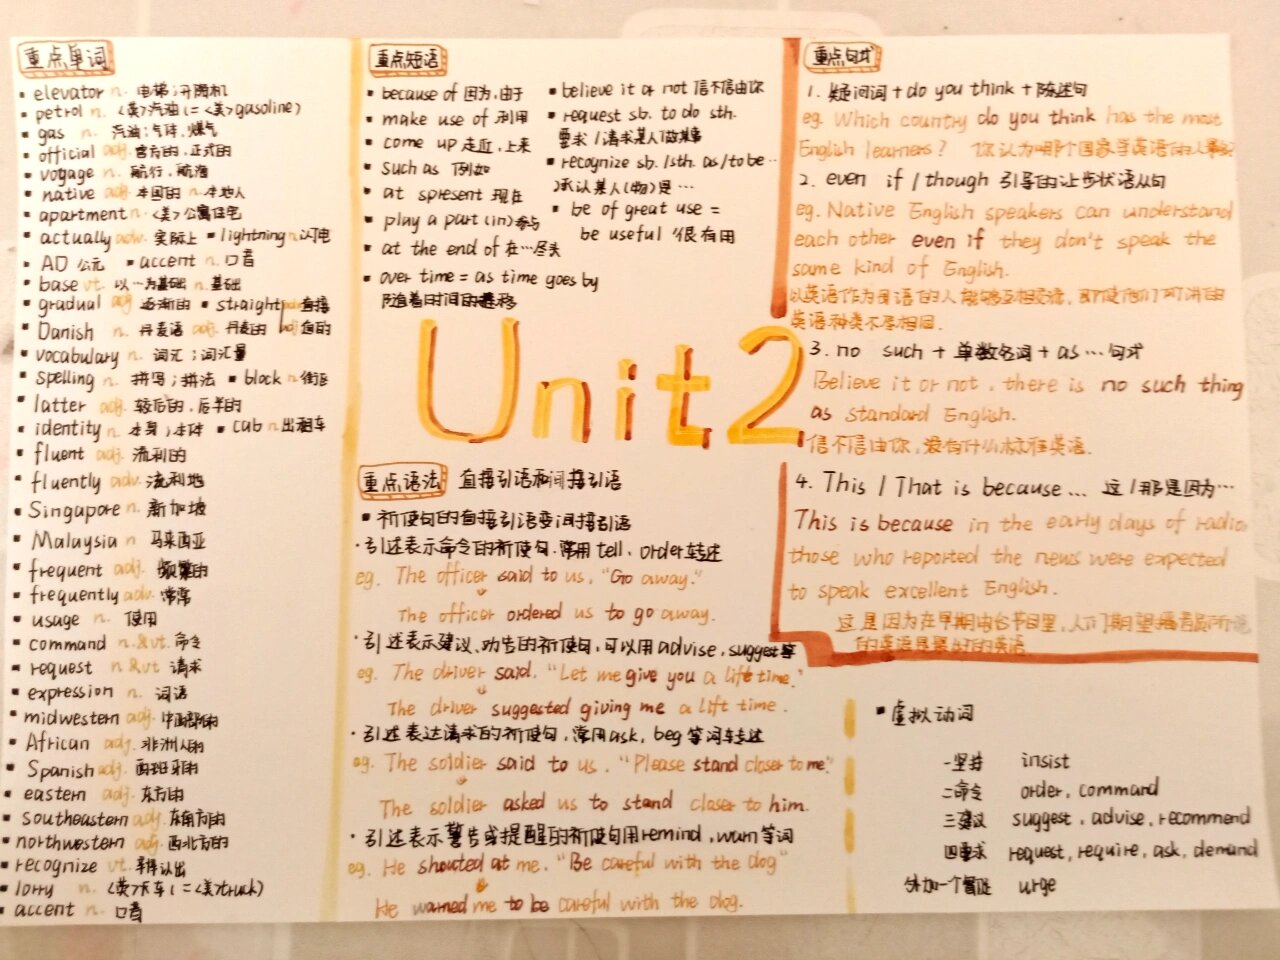 重点单词
elevator n. 电梯;升降机
petrol n. <英>汽油(=<美>gasoline)
gas n. 汽油;气体,煤气
official adj. 官方的,正式的
voyage n. 航行,航海
native adj. 本国的 n. 本地人
apartment n. <美>公寓住宅
actually adv. 实际上 ▪lightning n.闪电
AD 公元 ▪accent n. 口音
base vt. 以…为基础 n. 基础
gradual adj 逐渐的 ▪straight adv 直接
Danish n. 丹麦语 adj. 丹麦的 adj 直的
vocabulary n. 词汇;词汇量
spelling n. 拼写;拼法 ▪block n 街区
latter adj. 较后的,后半的
identity n. 本身;本体 ▪cab n 出租车
fluent adj. 流利的
fluently adv. 流利地
Singapore n. 新加坡
Malaysia n 马来西亚
frequent adj. 频繁的
frequently adv. 常常
usage n. 使用
command n.&vt. 命令
request n.&vt 请求
expression n. 词语
midwestern adj. 中西部的
African adj. 非洲人的
Spanish adj. 西班牙的
eastern adj. 东方的
southeastern adj. 东南方的
northwestern adj. 西北方的
recognize vt. 辨认出
lorry n. <英>卡车(=<美>truck)
accent n. 口音
重点短语
because of 因为,由于
make use of 利用
come up 走近,上来
such as 例如
at spresent 现在
play a part (in) 参与
at the end of 在…尽头
over time = as time goes by
随着时间的推移
believe it or not 信不信由你
request sb. to do sth.
要求/请求某人做某事
recognize sb./sth. as/to be…
承认某人(物)是…
be of great use =
be useful 很有用
Unit2
重点语法 直接引语和间接引语
▪祈使句的直接引语变间接引语
·引述表示命令的祈使句,常用tell,order转述
eg. The officer said to us, "Go away."
The officer ordered us to go away.
·引述表示建议、劝告的祈使句,可以用advise,suggest等
eg. The driver said. "Let me give you a lift time."
The driver suggested giving me a lift time.
·引述表达请求的祈使句,常用ask,beg等词转述
eg. The soldier said to us. "Please stand closer to me."
The soldier asked us to stand closer to him.
·引述表示警告或提醒的祈使句用remind,warn等词
eg. He shouted at me. "Be careful with the dog"
He warned me to be careful with the dog.
重点句式
1. 疑问词+do you think+陈述句
eg. Which country do you think has the most
English learners? 你认为哪个国家学英语的人最多
2. even if / though 引导的让步状语从句
eg. Native English speakers can understand
each other even if they don't speak the
same kind of English.
以英语作为母语的人能够互相交流,即使他们所讲的
英语种类不尽相同.
3. no such + 单数名词 + as …句式
Believe it or not, there is no such thing
as standard English.
信不信由你,没有什么标准英语.
4. This / That is because … 这/那是因为…
This is because in the early days of radio
those who reported the news were expected
to speak excellent English.
这是因为在早期电台节目里,人们期望播音员所说
的英语是最好的英语
▪虚拟动词
一坚持 insist
二命令 order, command
三建议 suggest, advise, recommend
四要求 request, require, ask, demand
外加一个 urge